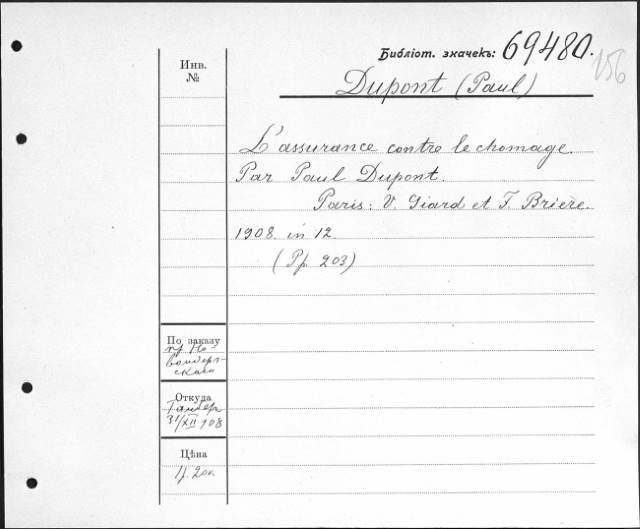 Инв.
№
Библіот. значекъ: 69480.
156
Dupont (Paul)
L'assurance contre le chomage.
Par Paul Dupont.
Paris: V. Giard et F. Brière.
1908. in 12.
(Pp. 203)
По заказу
пр.
Откуда
31/XII 908
Цѣна
1р. 20к.